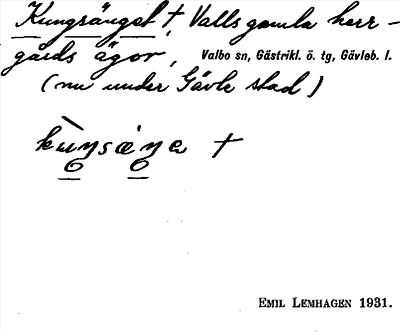 Kungsänget †, Valls gamla herr-
gårds ägor, Valbo sn, Gästrikl. ö. tg, Gävleb. l.
(nu under Gävle stad)
kùŋsæŋa †
EMIL LEMHAGEN 1931.